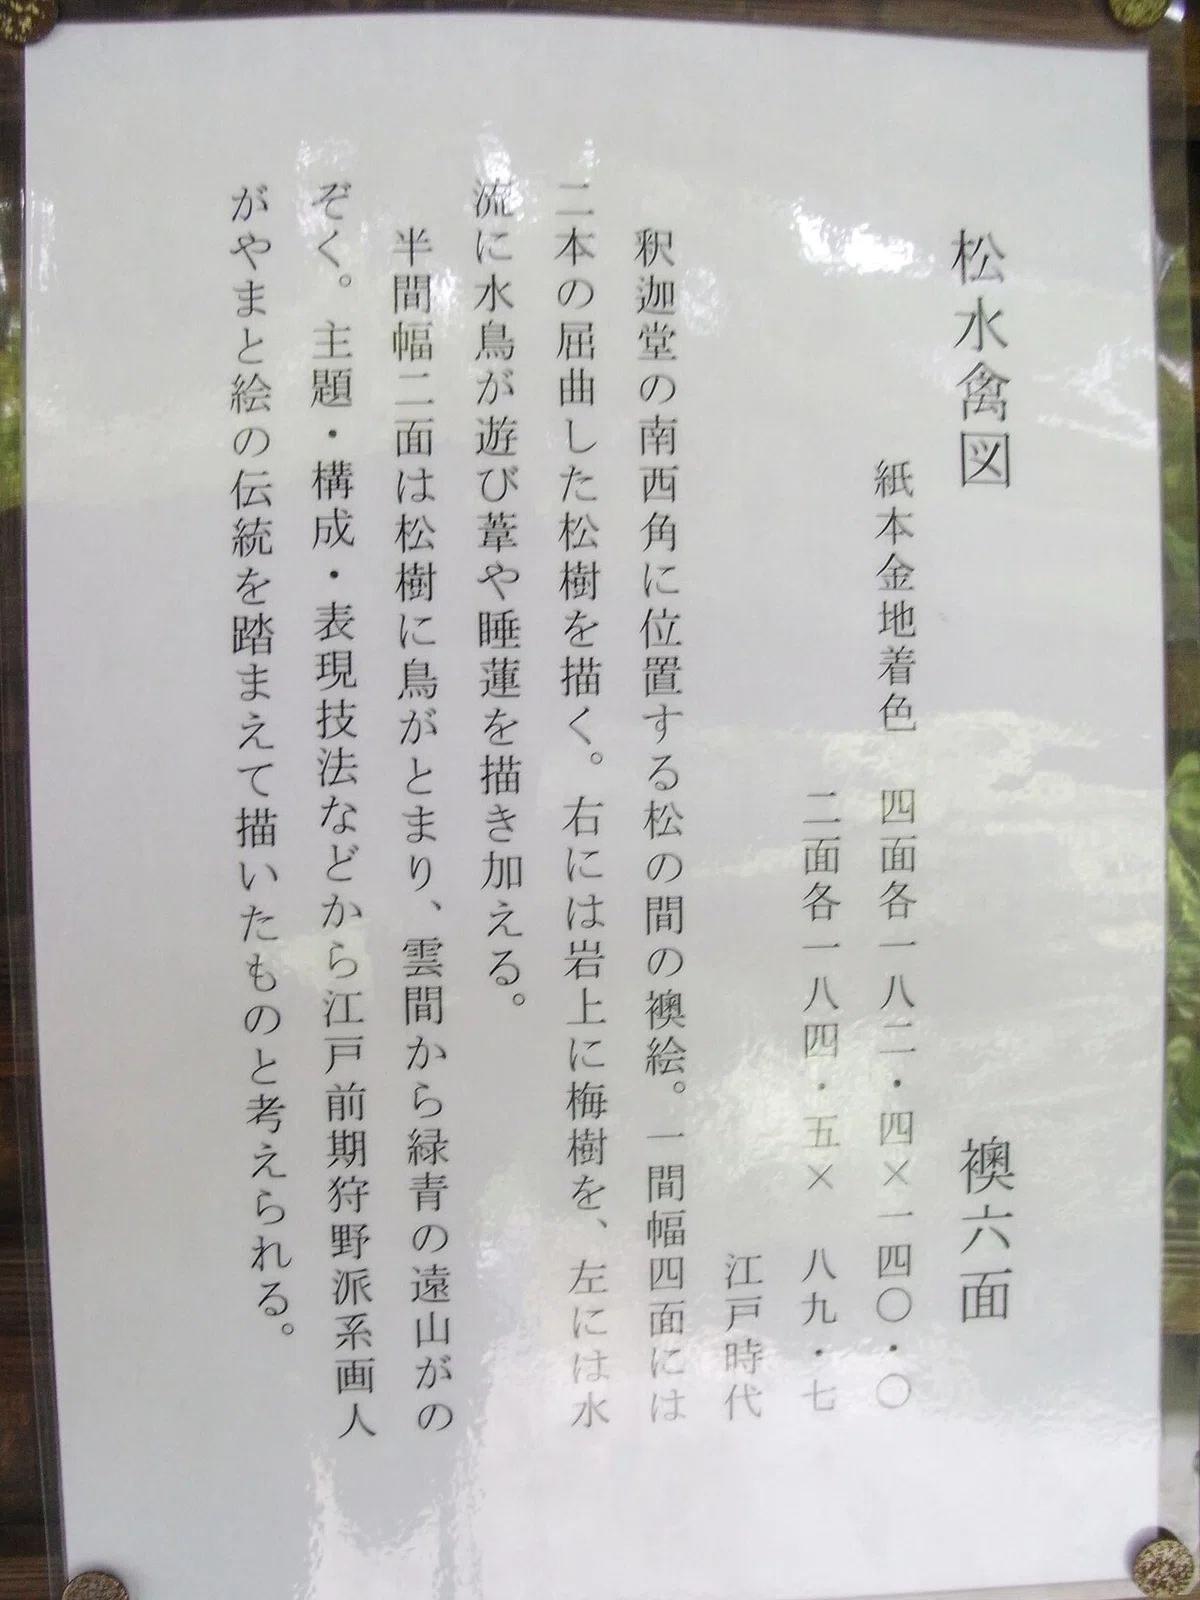 松水禽図　襖六面
紙本金地着色　四面各一八二・四×一四〇・〇
二面各一八四・五×　八九・七
江戸時代
釈迦堂の南西角に位置する松の間の襖絵。一間幅四面には
二本の屈曲した松樹を描く。右には岩上に梅樹を、左には水
流に水鳥が遊び葦や睡蓮を描き加える。
半間幅二面は松樹に鳥がとまり、雲間から緑青の遠山がの
ぞく。主題・構成・表現技法などから江戸前期狩野派系画人
がやまと絵の伝統を踏まえて描いたものと考えられる。